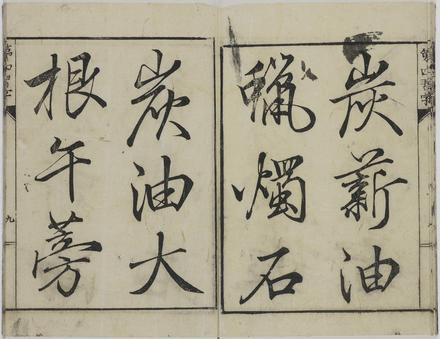 炭薪油
蠟燭石
炭油大
根午蒡
九